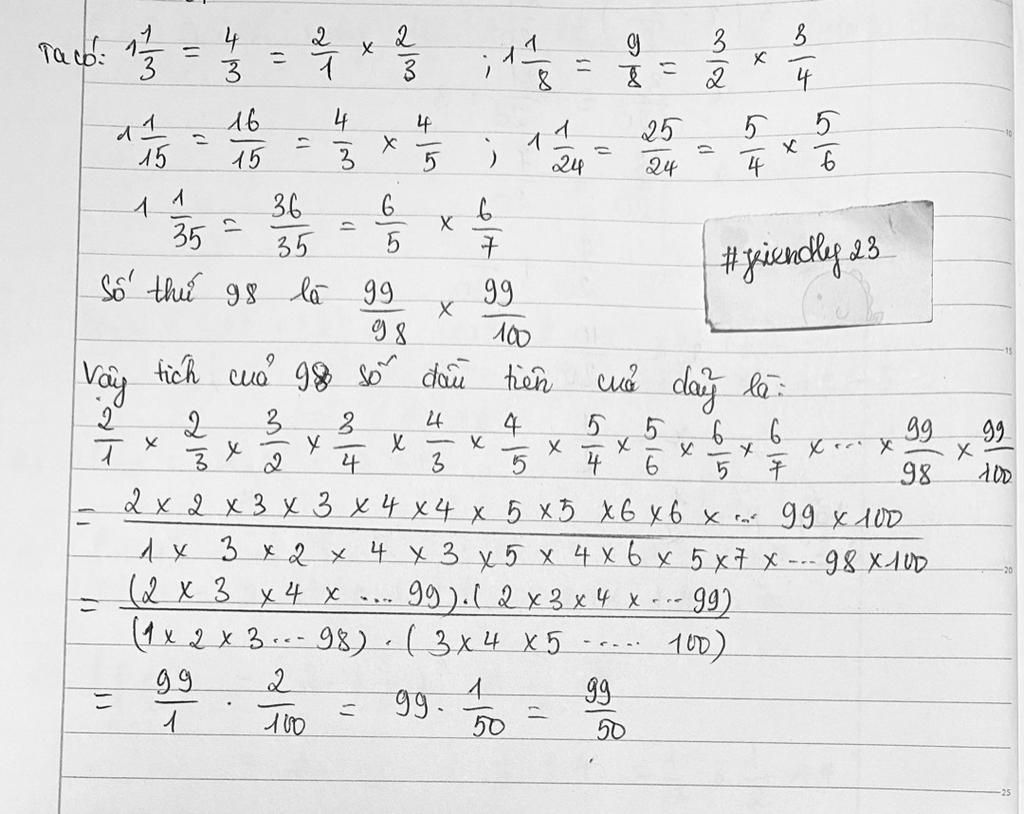 Ta có: 1 1/3 = 4/3 = 2/1 × 2/3 ; 1 1/8 = 9/8 = 3/2 × 3/4
1 1/15 = 16/15 = 4/3 × 4/5 ; 1 1/24 = 25/24 = 5/4 × 5/6
1 1/35 = 36/35 = 6/5 × 6/7
#friendly23
Số thứ 98 là 99/98 × 99/100
Vậy tích của 98 số đầu tiên của dãy là:
2/1 × 2/3 × 3/2 × 3/4 × 4/3 × 4/5 × 5/4 × 5/6 × 6/5 × 6/7 × ... × 99/98 × 99/100
= (2 × 2 × 3 × 3 × 4 × 4 × 5 × 5 × 6 × 6 × ... 99 × 100)/(1 × 3 × 2 × 4 × 3 × 5 × 4 × 6 × 5 × 7 × ... 98 × 100)
= ((2 × 3 × 4 × ... 99).(2 × 3 × 4 × ... 99))/((1 × 2 × 3 ... 98) . (3 × 4 × 5 ..... 100))
= 99/1 . 2/100 = 99 . 1/50 = 99/50